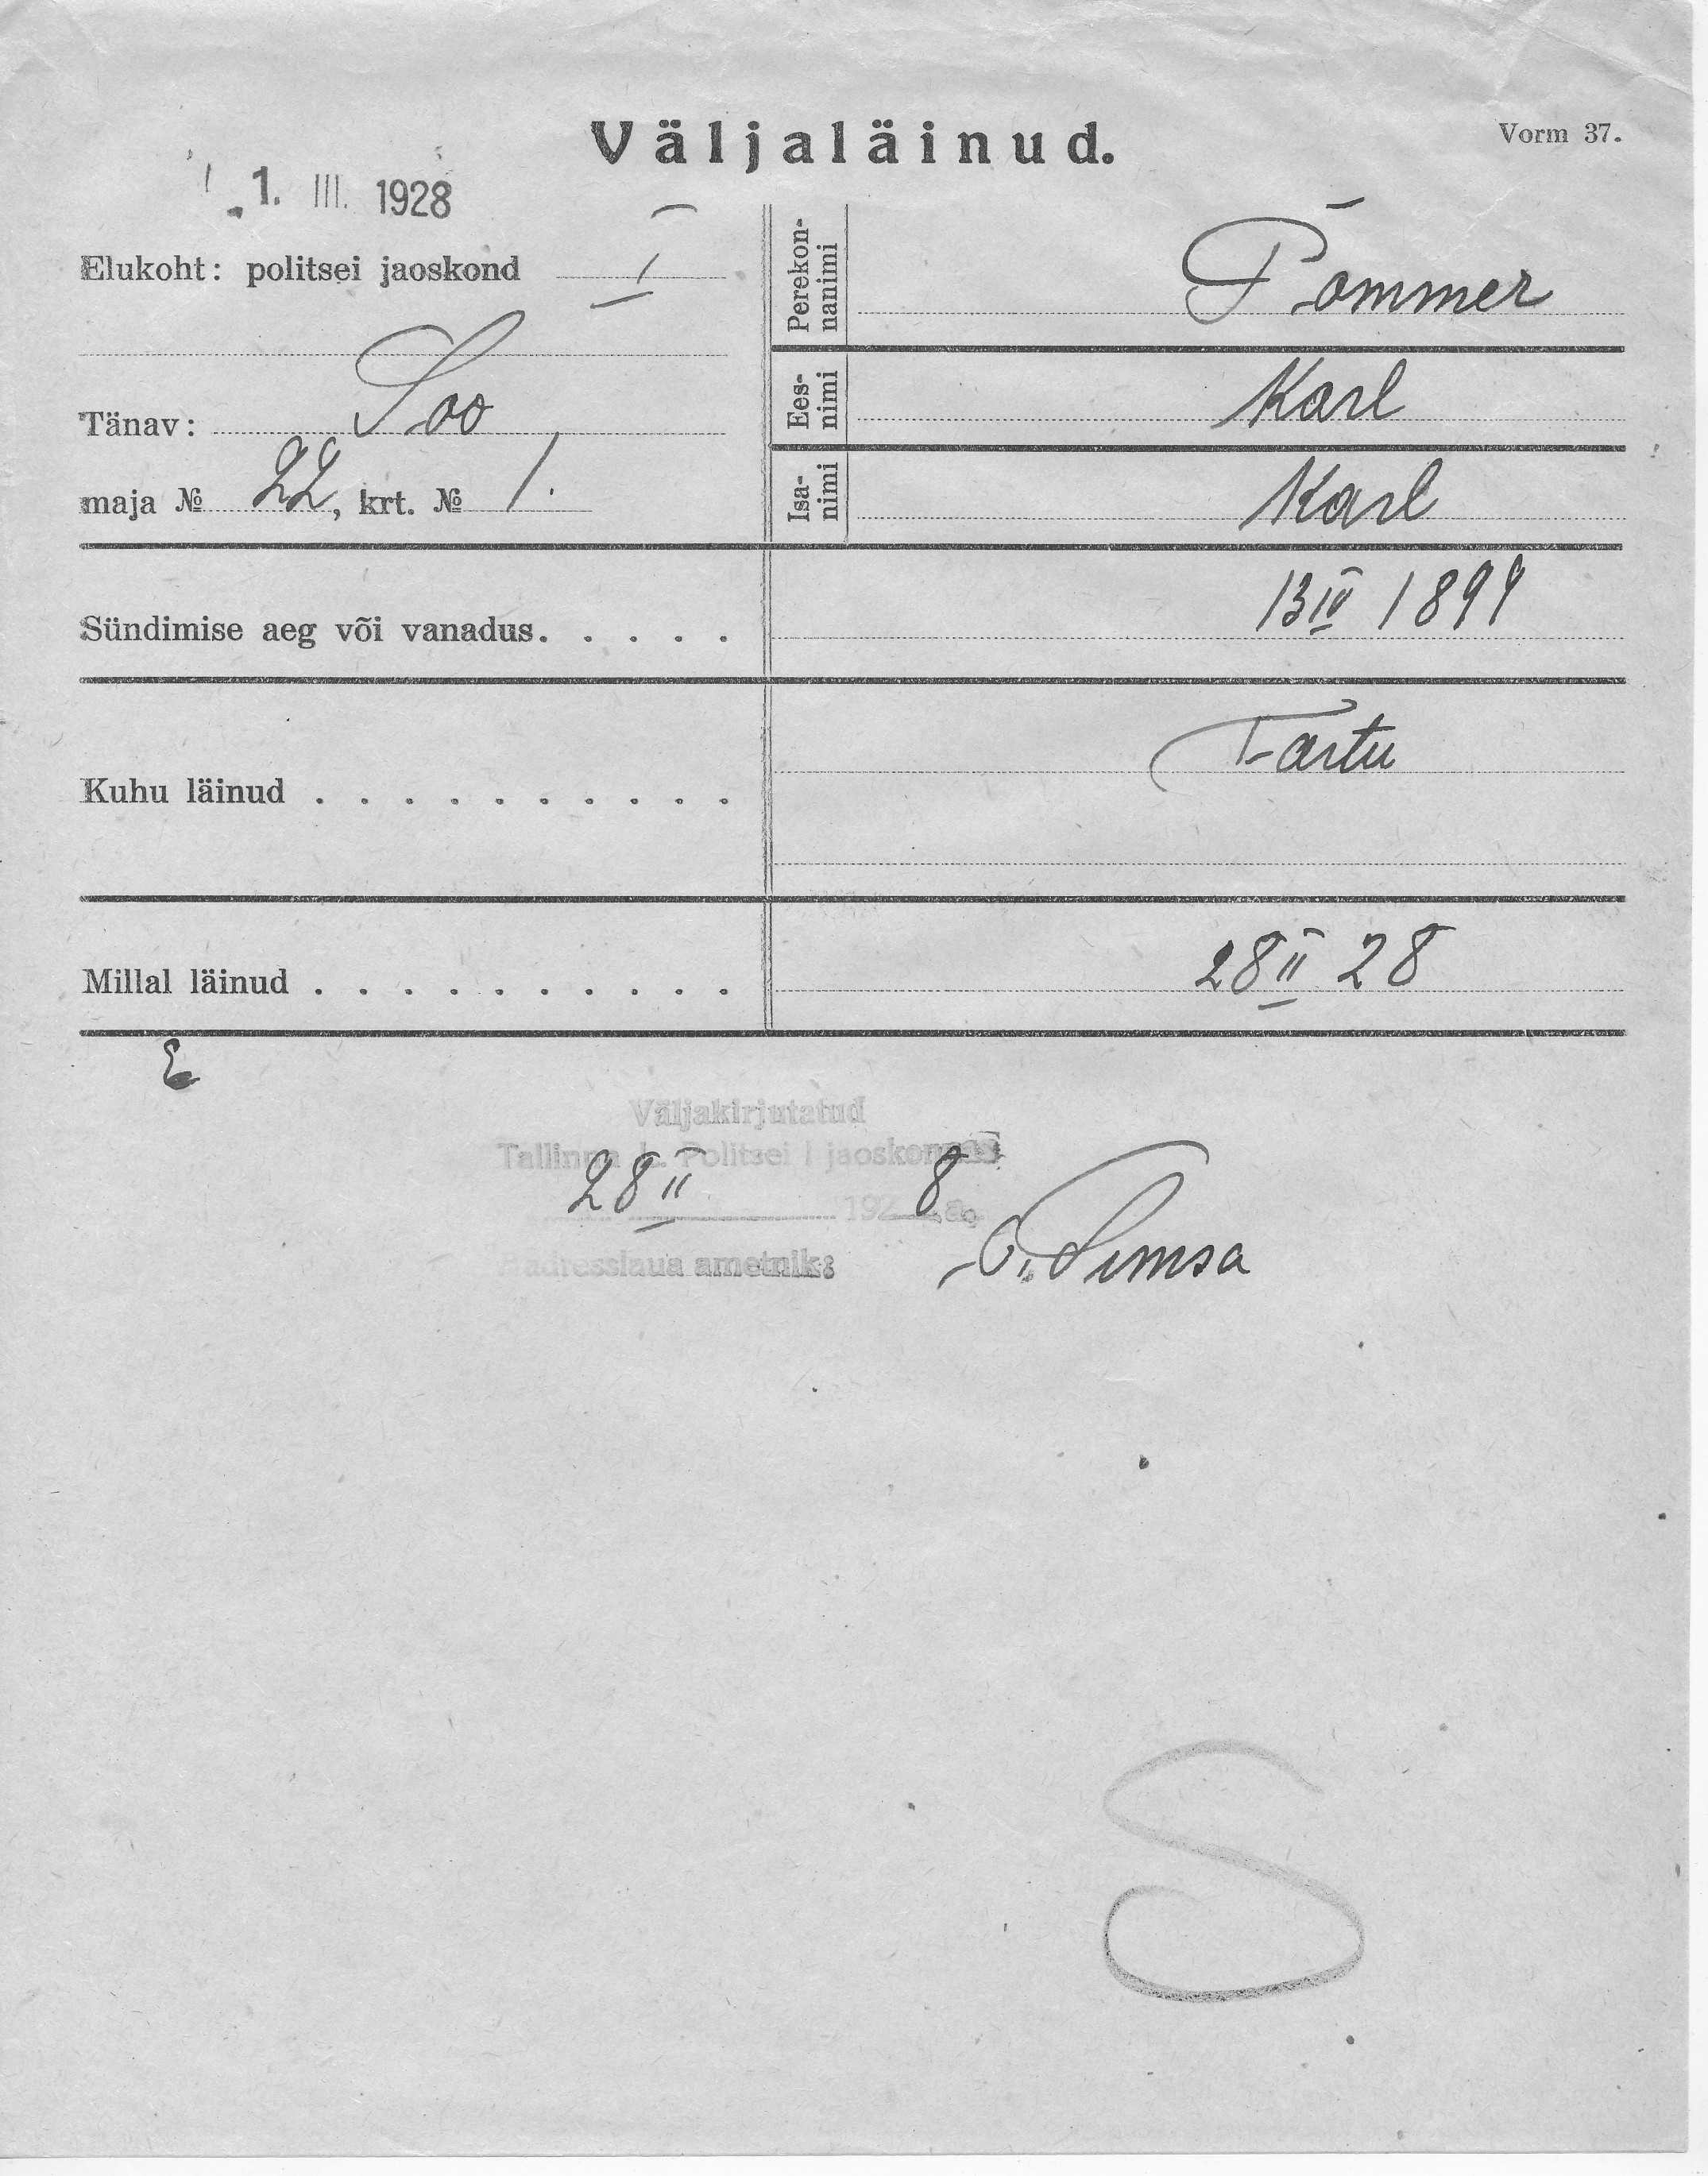 Väljaläinud.
Vorm 37.
1. III. 1928
Elukoht: politsei jaoskond I
Tänav: Soo
maja № 22, krt. № 1.
Perekon-
nanimi
Põmmer
Ees-
nimi
Karl
Isa-
nimi
Karl
Sündimise aeg või vanadus. . . . . 13 IV 1899
Kuhu läinud . . . . . . . . . . Tartu
Millal läinud . . . . . . . . . . 28 II 28
Väljakirjutatud
Tallinna L. Politsei I jaoskonnas
28 II 1928 a.
Adresslaua ametnik:
S